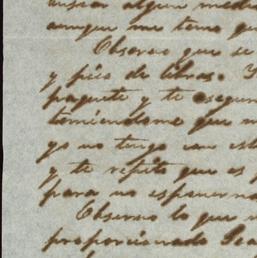 buscar algun medi
aunque me temo qu
Observo que se
y pico de libras. Y
paquete y te asegur
temiendome que m
yo no tengo con est
y te repito que es p
para no esponerno
Observo lo que m
proporcionado Gea